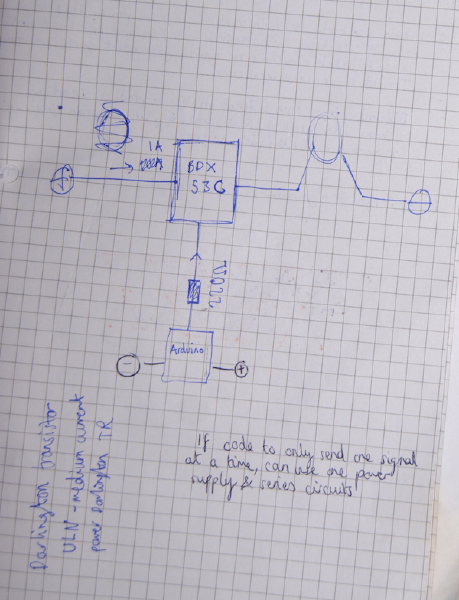 1A
BDX
53C
220Ω
Arduino
-
+
Darlington transistor
ULN - medium current
power Darlington TR
If code to only send one signal
at a time, can use one power
supply & series circuits